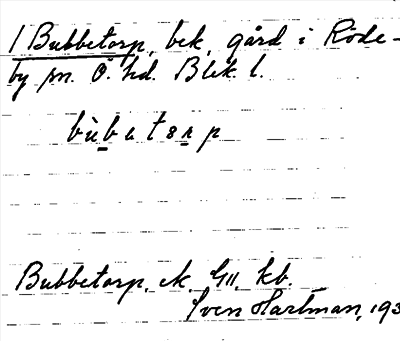 1 Bubbetorp, bek. gård i Röde-
by sn. Ö. hd. Blek. l.
bùbatorp
Bubbetorp, ek. G11, kb.
Sven Hartman, 193